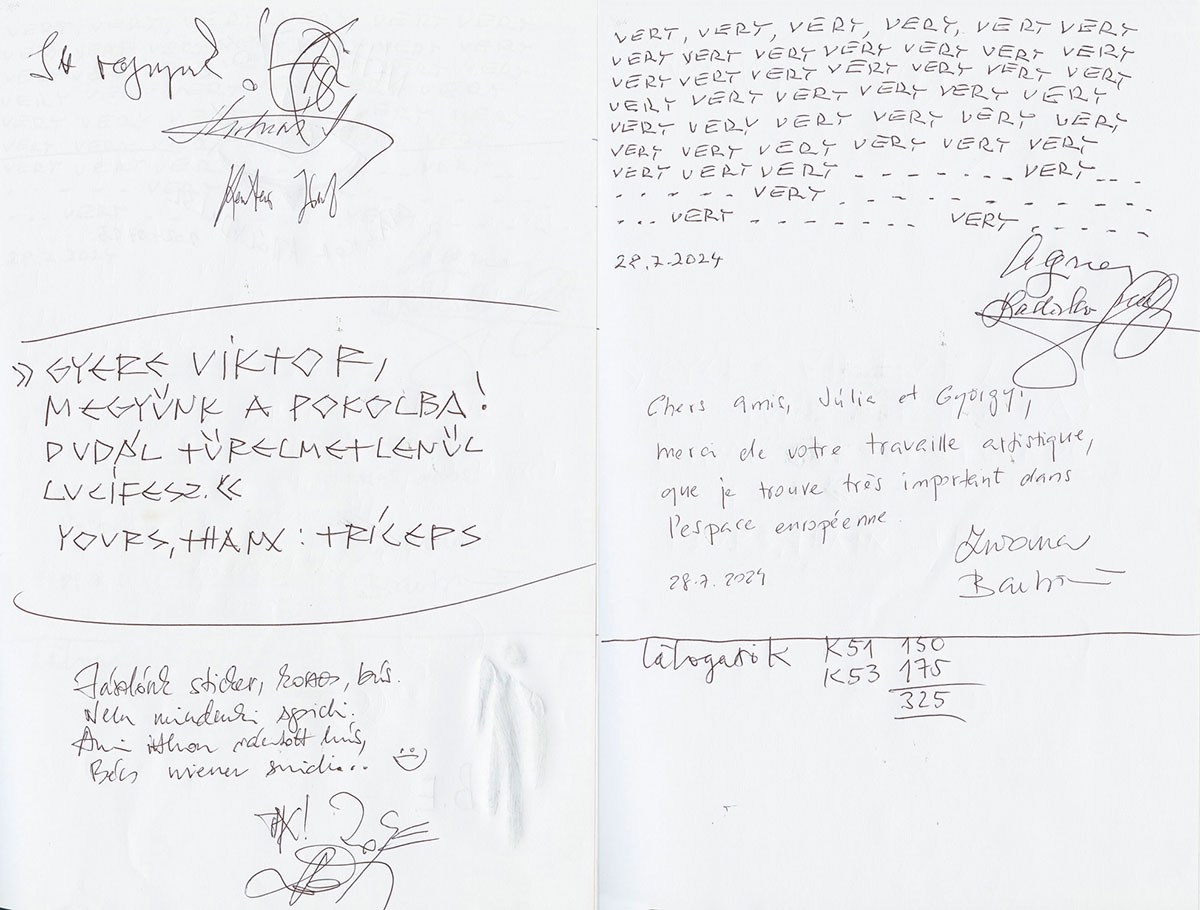 Itt vagyunk!
»GYERE VIKTOR,
MEGYÜNK A POKOLBA!
DUDÁL TÜRELMETLENÜL
LUCIFESZ.«
YOURS, THANX: TRÍCEPS
sticker,
Nem mindenki spicli.
Ami itthon rántott hús,
Bécs wiener snicli...
VERY, VERY, VERY, VERY, VERY VERY
VERY VERY VERY VERY VERY VERY VERY
VERY VERY VERY VERY VERY VERY VERY
VERY VERY VERY VERY VERY VERY
VERY VERY VERY VERY VERY VERY
VERY VERY VERY VERY VERY VERY
VERY VERY VERY - - - - - - - VERY - - -
- - - - - - VERY - - - - - - - - - - -
- - - VERY - - - - - - - VERY - - - - - -
28.7.2024
Agnes
Chers amis, Júlia et György,
merci de votre travaille artistique,
que je trouve très important dans
l'espace européenne.
28.7.2024
Zuzana
Látogatók K51 150
K53 175
325